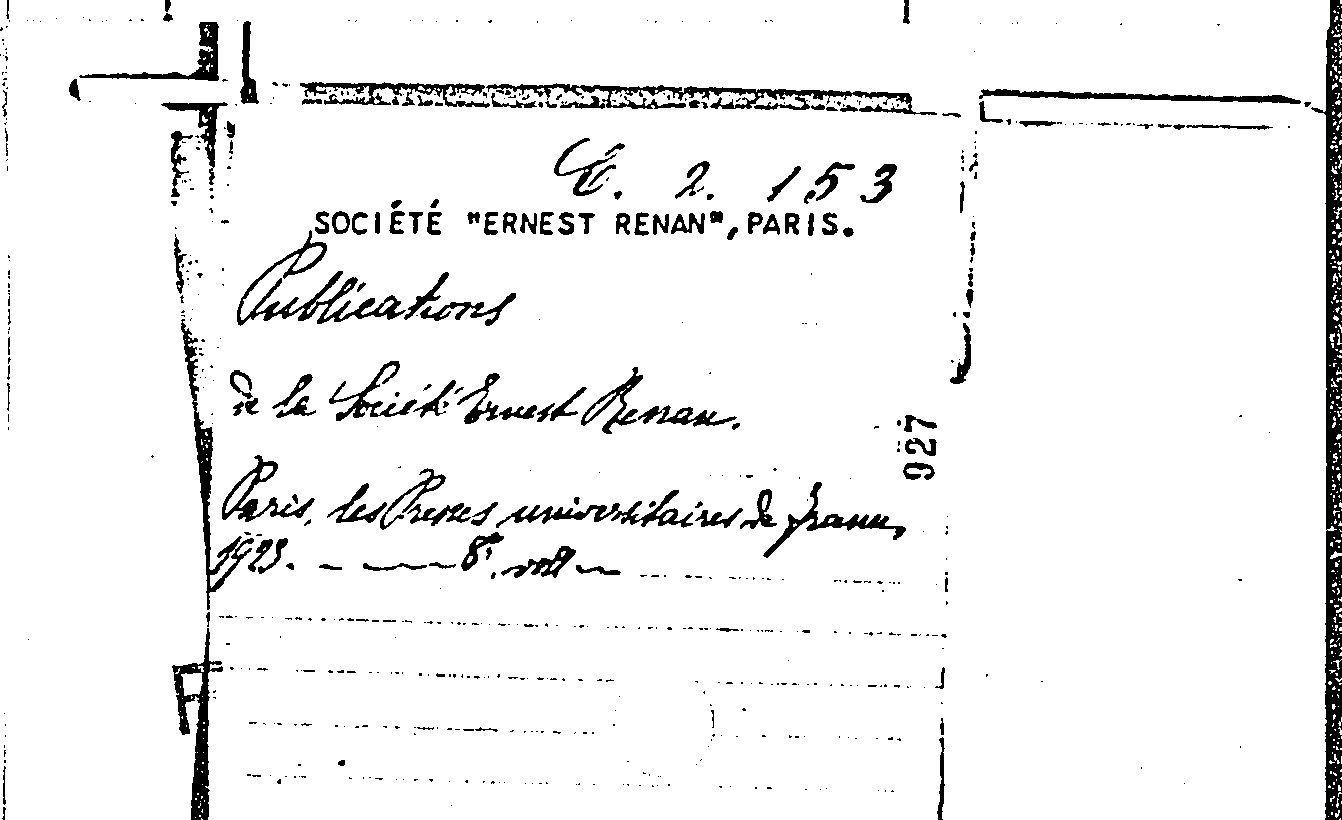 E. 2. 153
SOCIÉTÉ "ERNEST RENAN", PARIS.
Publications
de la Société Ernest Renan.
Paris, les Presses universitaires de France,
1923. - — 8°.
927